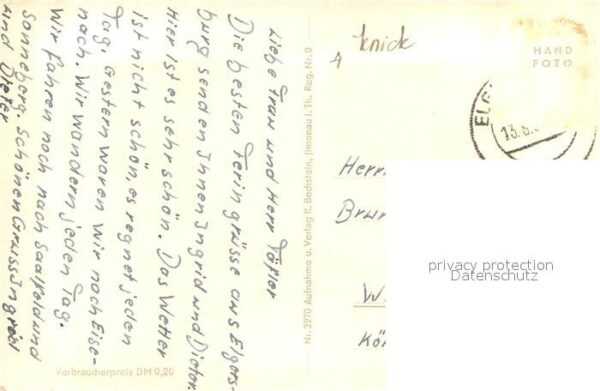 Liebe Frau und Herr Töpfer
Die besten Feringrüsse aus Elgers-
burg senden Ihnen Ingrid und Dieter
Hier ist es sehr schön. Das Wetter
ist nicht schön, es regnet jeden
Tag. Gestern waren wir nach Eise-
nach. Wir wandern jeden Tag.
Wir fahren noch nach Saalfeld und
Sonneberg. Schönen Gruss Ingrid
und Dieter
Verbraucherpreis DM 0,20
Nr. 3270 Aufnahme u. Verlag E. Bochstein, Jlmenau i. Th. Reg. Nr. 9
knick
HAND
FOTO
ELG
13.8.
Herr
Brun
W
Kö
privacy protection
Datenschutz